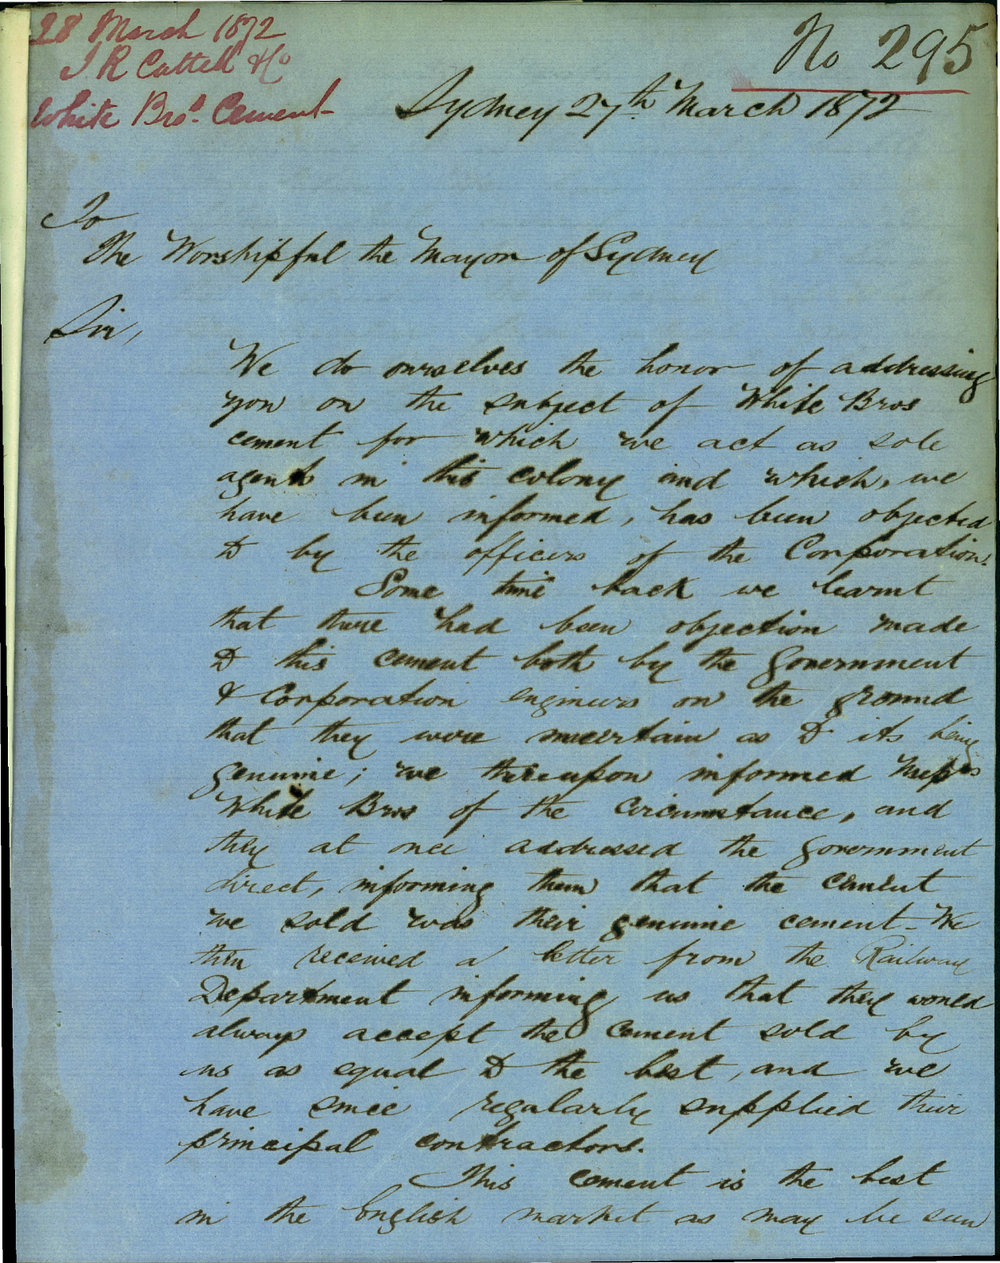 28 March 1872
J R Cattell & Co
White Bros. Cement
No 295
Sydney 27th March 1872
To
The Worshipful the Mayor of Sydney
Sir,
We do ourselves the honor of addressing
you on the subject of White Bros
cement for which we act as sole
agents in this colony and which, we
have been informed, has been objected
to by the officers of the Corporation.
Some time back we learnt
that there had been objection made
to this cement both by the Government
& Corporation engineers on the ground
that they were uncertain as to its being
genuine; we thereupon informed Messrs
White Bros of the circumstance, and
they at once addressed the Government
direct, informing them that the cement
we sold was their genuine cement - We
then received a letter from the Railway
Department informing us that they would
always accept the cement sold by
us as equal to the best, and we
have since regularly supplied their
principal contractors.
This cement is the best
in the English market as may be seen